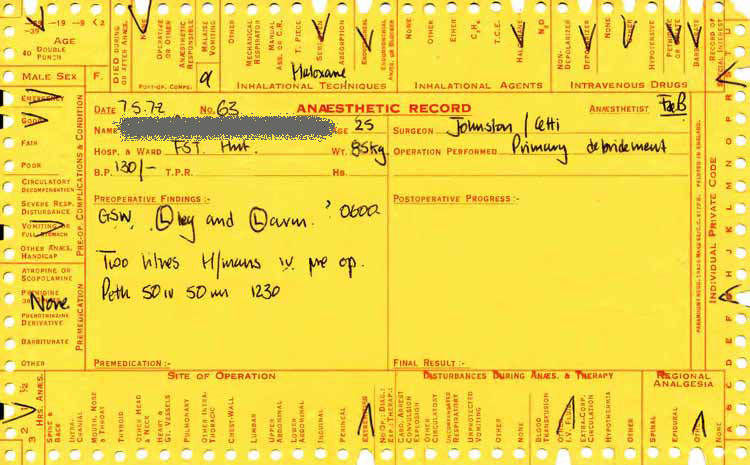 39 -19 -9 < 2
AGE
40 DOUBLE PUNCH
MALE SEX F.
DIED DURING OR AFTER ANÆS.
NONE
OPERATIVE OR OTHER
ANÆSTHETIC RESPONSIBLE
MALAISE VOMITING
POST-OP. COMPS.
a
OTHER
MECHANICAL RESPIRATOR
MANUAL ASS. OR C.R.
T. PIECE
ABSORPTION
ENDOBRONCHIAL
Haloxane
INHALATIONAL TECHNIQUES
OTHER
ETHER
C₂H₄
T.C.E.
HALOTHANE
N₂O
INHALATIONAL AGENTS
NON-DEPOLARIZER
DEPOLARIZER
NONE
OTHER
HYPOTENSIVE
PETHIDINE
BARBITURATE
INTRAVENOUS DRUGS
RECORD OF SPECIAL INTEREST
EMERGENCY
GOOD
FAIR
POOR
CIRCULATORY DECOMPENSATION
SEVERE RESP. DISTURBANCE
VOMITING OR FULL STOMACH
OTHER ANÆS. HANDICAP
PRE-OP. COMPLICATIONS & CONDITION
ATROPINE OR SCOPOLAMINE
PETHIDINE
None
PHENOTHIAZINE DERIVATIVE
BARBITURATE
OTHER
PREMEDICATION
DATE 7.5.72 NO. 63 ANÆSTHETIC RECORD ANÆSTHETIST
NAME AGE 25 SURGEON Johnston / Cetti
HOSP. & WARD FST. WT. 85kg OPERATION PERFORMED Primary debridement
B.P. 130/- T.P.R. HB.
PREOPERATIVE FINDINGS:- POSTOPERATIVE PROGRESS:-
GSW (L) leg and (L) arm. ? 0600.
Two litres H/mans iv pre op.
Peth 50 iv 50 im 1230
PREMEDICATION:- FINAL RESULT:-
PRINTED IN ENGLAND.
INDIVIDUAL PRIVATE CODE
SITE OF OPERATION
DISTURBANCES DURING ANÆS. & THERAPY
REGIONAL ANALGESIA
HRS. ANÆS.
½
2
3
SPINE & BACK
INTRA-CRANIAL
MOUTH, NOSE & THROAT
THYROID
OTHER HEAD & NECK
HEART & GT. VESSELS
PULMONARY
OTHER INTRA-THORACIC
CHEST-WALL
LUMBAR
UPPER ABDOMINAL
LOWER ABDOMINAL
INGUINAL
PERINEAL
EXTREMITIES
CARD. ARREST
CONVULSION
EXPLOSION
OTHER CIRCULATORY
UNCOMPENSATED RESPIRATORY
UNPROTECTED VOMITING
OTHER
NONE
BLOOD TRANSFUSION
OTHER I.V. FLUIDS
EXTRA-CORP. CIRCULATION
HYPOTHERMIA
OTHER
SPINAL
EPIDURAL
OTHER
NONE
A B C D E F G H I J K L M N O P R S T U